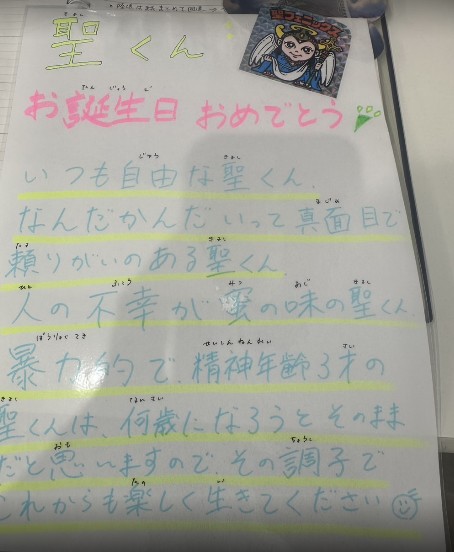 聖くん
お誕生日 おめでとう
いつも自由な聖くん、
なんだかんだいって真面目で
頼りがいのある聖くん、
人の不幸が蜜の味の聖くん、
暴力的で、精神年齢3才の
聖くんは、何歳になろうとそのまま
だと思いますので、その調子で
これからも楽しく生きてください